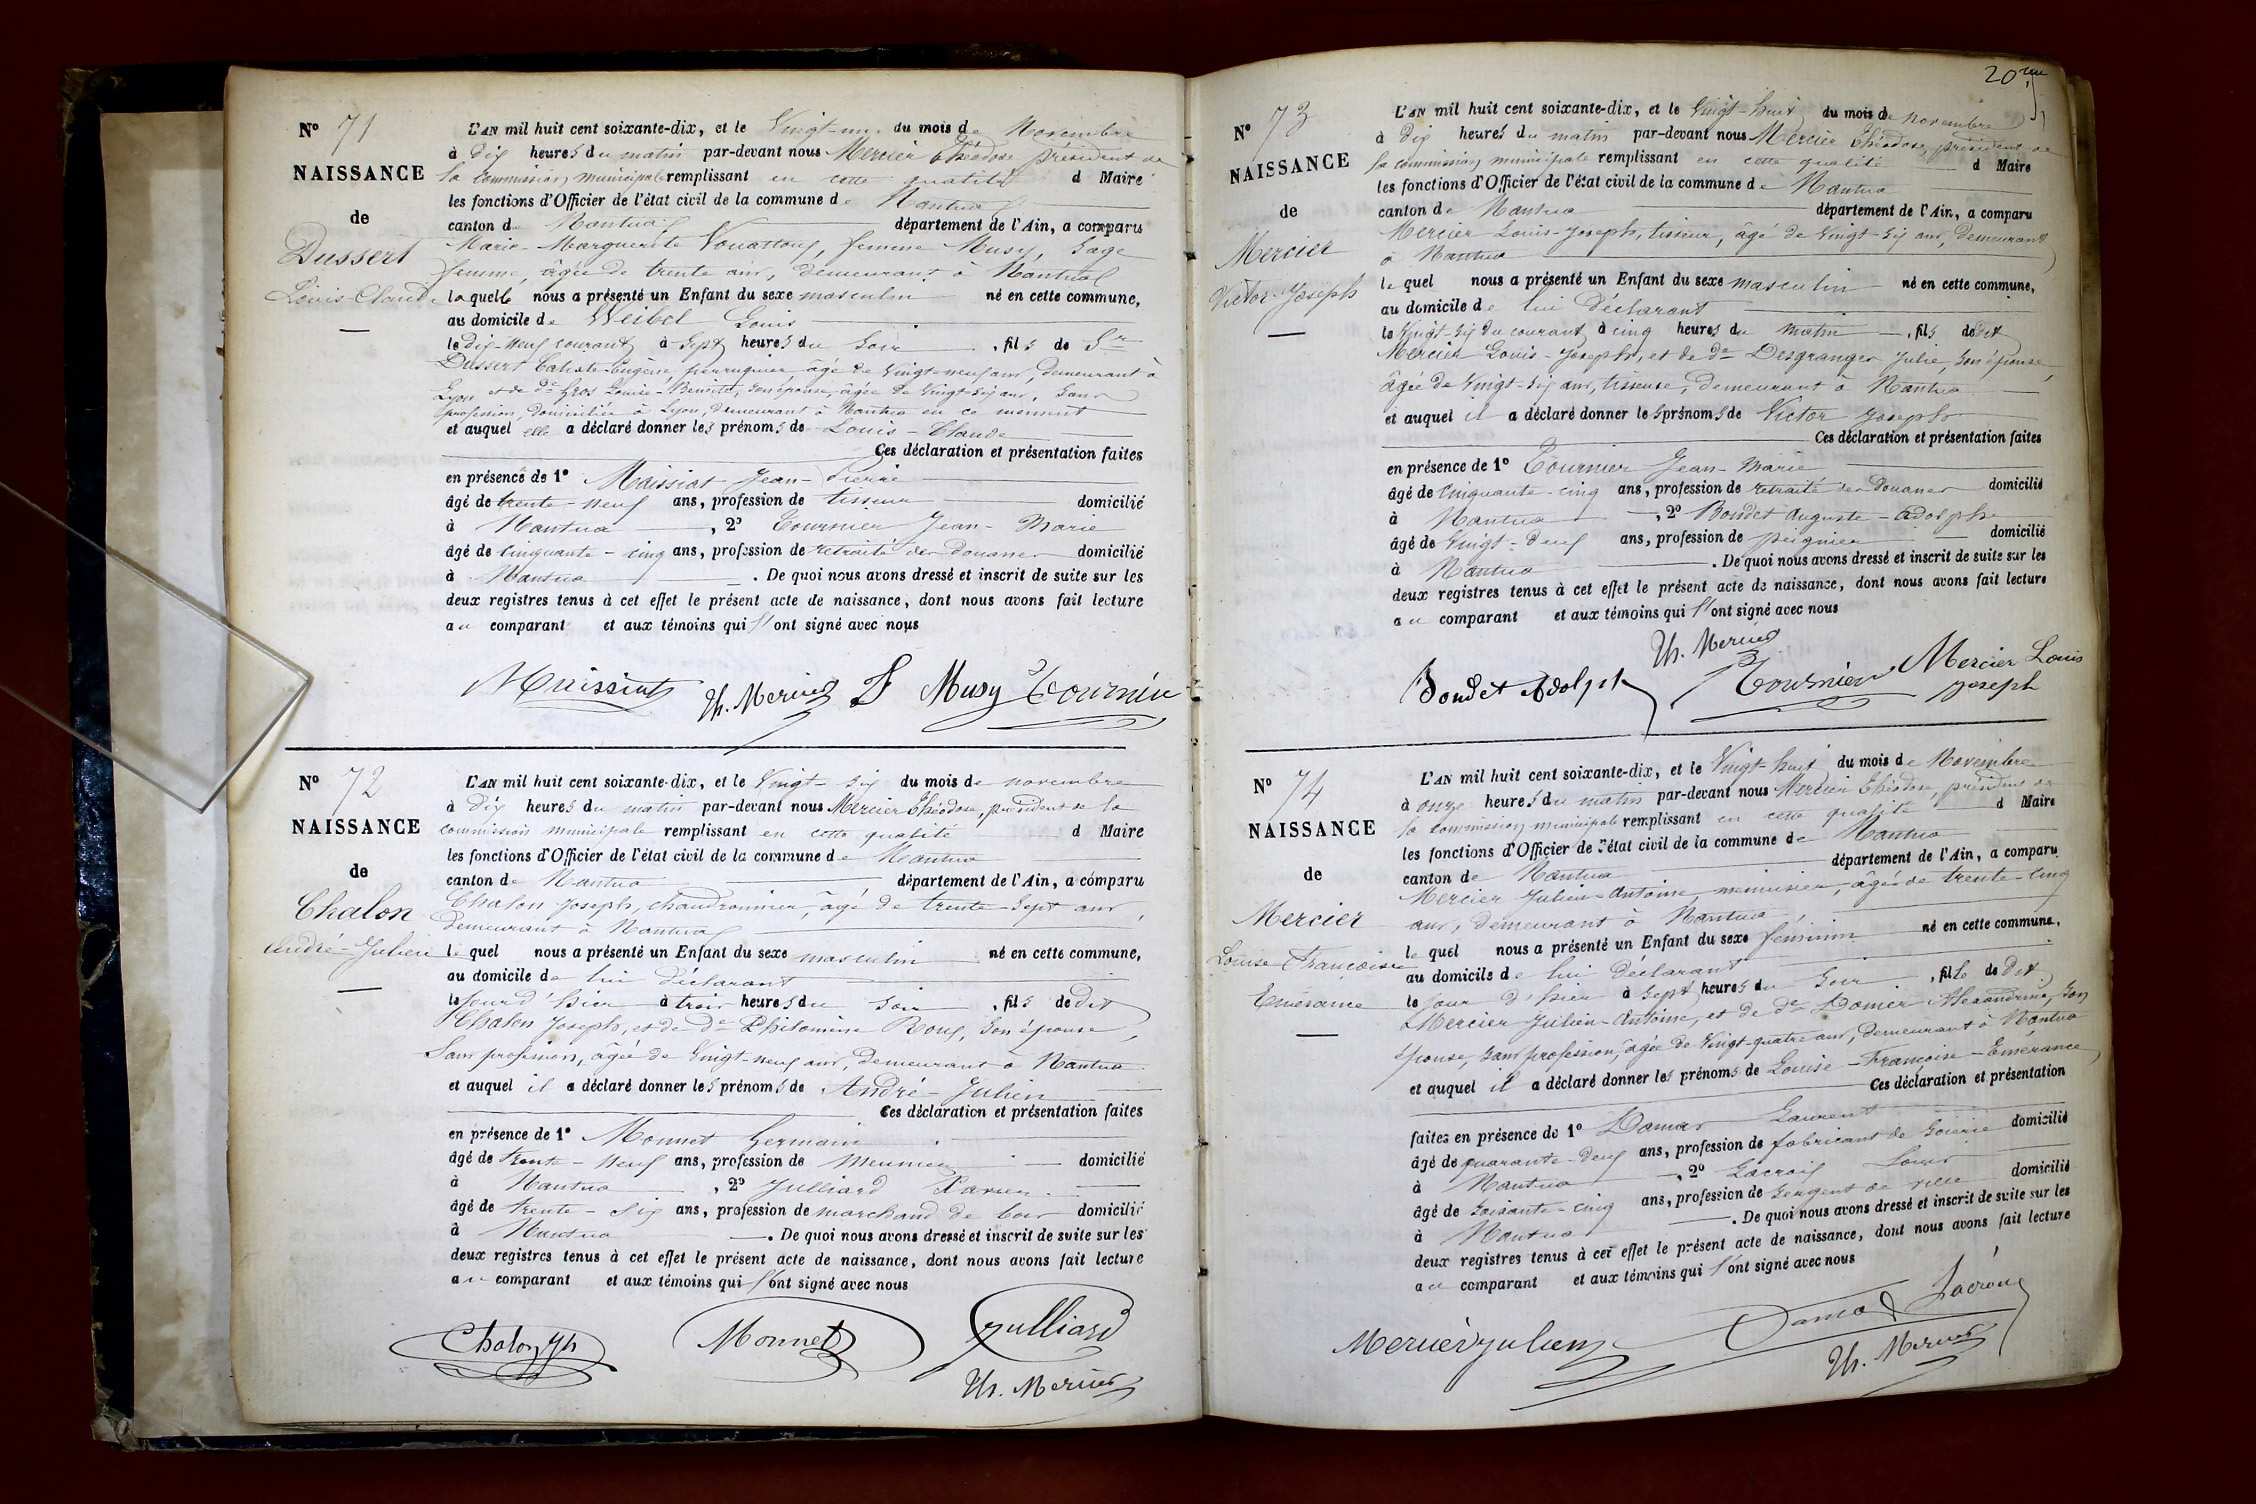 N° 71
NAISSANCE
de
Dussert
Louis-Claude
L'AN mil huit cent soixante-dix, et le Vingt-un du mois de Novembre
à dix heures du matin par-devant nous Mercier Théodose président de
la commission municipale remplissant en cette qualité d Maire
les fonctions d'Officier de l'état civil de la commune de Nantua
canton de Nantua département de l'Ain, a comparu
Marie-Marguerite femme Musy, Sage
femme, âgée de trente ans, demeurant à Nantua
laquelle nous a présenté un Enfant du sexe masculin né en cette commune,
au domicile de Weibel Louis
le dix-neuf courant, à Sept heures du Soir, fils de Sr
Dussert Calixte-Eugène, perruquier âgé de Vingt-neuf ans, demeurant à
Lyon et de de Gros Louise-Benoite, son épouse, âgée de Vingt-six ans, sans
profession, domiciliée à Lyon, demeurant à Nantua en ce moment
et auquel elle a déclaré donner les prénoms de Louis-Claude
Ces déclaration et présentation faites
en présence de 1° Maissiat Jean-Pierre
âgé de trente-neuf ans, profession de tisseur domicilié
à Nantua, 2° Tournier Jean-Marie
âgé de Cinquante-cinq ans, profession de retraité des Douanes domicilié
à Nantua. De quoi nous avons dressé et inscrit de suite sur les
deux registres tenus à cet effet le présent acte de naissance, dont nous avons fait lecture
au comparant et aux témoins qui l'ont signé avec nous
Maissiat Th. Mercier F Musy Tournier
N° 72
NAISSANCE
de
Chalon
André-Julien
L'AN mil huit cent soixante-dix, et le Vingt-six du mois de novembre
à Dix heures du matin par-devant nous Mercier Théodose, président de la
commission municipale remplissant en cette qualité d Maire
les fonctions d'Officier de l'état civil de la commune de Nantua
canton de Nantua département de l'Ain, a comparu
Chalon Joseph, chaudronnier, âgé de trente-Sept ans,
Demeurant à Nantua
lequel nous a présenté un Enfant du sexe masculin né en cette commune,
au domicile de lui déclarant
le jour d'hier à trois heures du Soir, fils de dit
Chalon Joseph, et de de Philomène Roux, son épouse,
Sans profession, âgée de Vingt-neuf ans, demeurant à Nantua
et auquel il a déclaré donner les prénoms de André-Julien
Ces déclaration et présentation faites
en présence de 1° Monnet Germain
âgé de trente-neuf ans, profession de Menuisier domicilié
à Nantua, 2° Julliard Xavier
âgé de trente-six ans, profession de marchand de bois domicilié
à Nantua. De quoi nous avons dressé et inscrit de suite sur les
deux registres tenus à cet effet le présent acte de naissance, dont nous avons fait lecture
au comparant et aux témoins qui l'ont signé avec nous
Chalon Jh Monnet Julliard
Th. Mercier
N° 73
NAISSANCE
de
Mercier
Victor-Joseph
L'AN mil huit cent soixante-dix, et le Vingt-huit du mois de novembre
à Dix heures du matin par-devant nous Mercier Théodose, président de
la commission municipale remplissant en cette qualité d Maire
les fonctions d'Officier de l'état civil de la commune de Nantua
canton de Nantua département de l'Ain, a comparu
Mercier Louis-Joseph, tisseur, âgé de Vingt-six ans, Demeurant
à Nantua
lequel nous a présenté un Enfant du sexe masculin né en cette commune,
au domicile de lui Déclarant
le Vingt-six du courant à cinq heures du matin, fils de dit
Mercier Louis-Joseph, et de de Desgranges Julie, son épouse,
âgée de Vingt-six ans, tisseuse, demeurant à Nantua
et auquel il a déclaré donner les prénoms de Victor Joseph
Ces déclaration et présentation faites
en présence de 1° Tournier Jean-Marie
âgé de Cinquante-cinq ans, profession de retraité des Douanes domicilié
à Nantua, 2° Bondet Auguste-Adolphe
âgé de Vingt-deux ans, profession de peignier domicilié
à Nantua. De quoi nous avons dressé et inscrit de suite sur les
deux registres tenus à cet effet le présent acte de naissance, dont nous avons fait lecture
au comparant et aux témoins qui l'ont signé avec nous
Th. Mercier
Bondet Adolph Tournier Mercier Louis
joseph
N° 74
NAISSANCE
de
Mercier
Louise Françoise
Emérance
L'AN mil huit cent soixante-dix, et le Vingt-huit du mois de Novembre
à onze heures du matin par-devant nous Mercier Théodose, président de
la commission municipale remplissant en cette qualité d Maire
les fonctions d'Officier de l'état civil de la commune de Nantua
canton de Nantua département de l'Ain, a comparu
Mercier Julien-Antoine, menuisier, âgé de trente-cinq
ans, demeurant à Nantua
lequel nous a présenté un Enfant du sexe féminin né en cette commune,
au domicile de lui Déclarant
le jour d'hier à Sept heures du Soir, fille de dit
Mercier Julien-Antoine, et de de Alexandrine, son
épouse, sans profession, âgée de Vingt-quatre ans, demeurant à Nantua
et auquel il a déclaré donner les prénoms de Louise-Françoise-Emerance
Ces déclaration et présentation
faites en présence de 1° Damas Laurent
âgé de quarante-deux ans, profession de fabricant de soierie domicilié
à Nantua, 2° Lacroix Louis
âgé de soixante-cinq ans, profession de Sergent de ville domicilié
à Nantua. De quoi nous avons dressé et inscrit de suite sur les
deux registres tenus à cet effet le présent acte de naissance, dont nous avons fait lecture
au comparant et aux témoins qui l'ont signé avec nous
Mercier julien Damas Lacroix
Th. Mercier